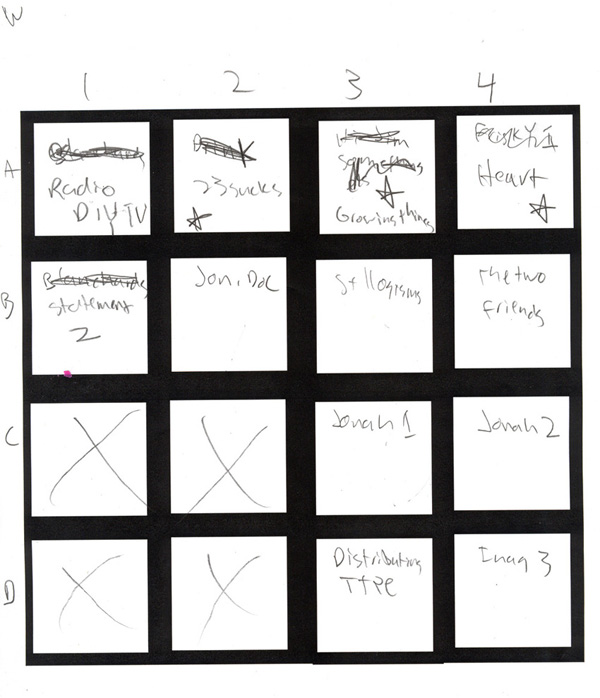 W
1 2 3 4
A
Radio
DIY TV
23 sucks
Growing things
Heart
B
statement
2
Jon. Doc
Syllogisms
The two
friends
C
Jonah 1
Jonah 2
D
Distributing
Type
Imag 3